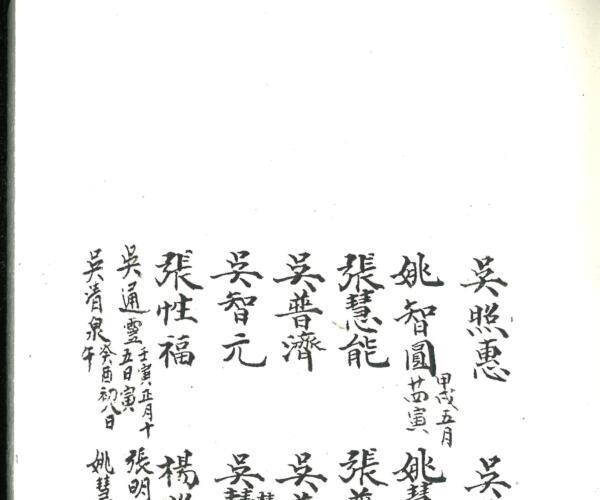 吳照惠
姚智圓 甲戌五月廿四寅
張慧能
吳普濟
吳智元
張性福
吳通靈 壬寅正月十五日寅
吳清泉 癸酉初八日午
吳
姚慧
張
吳
吳慧
楊
張明
姚慧